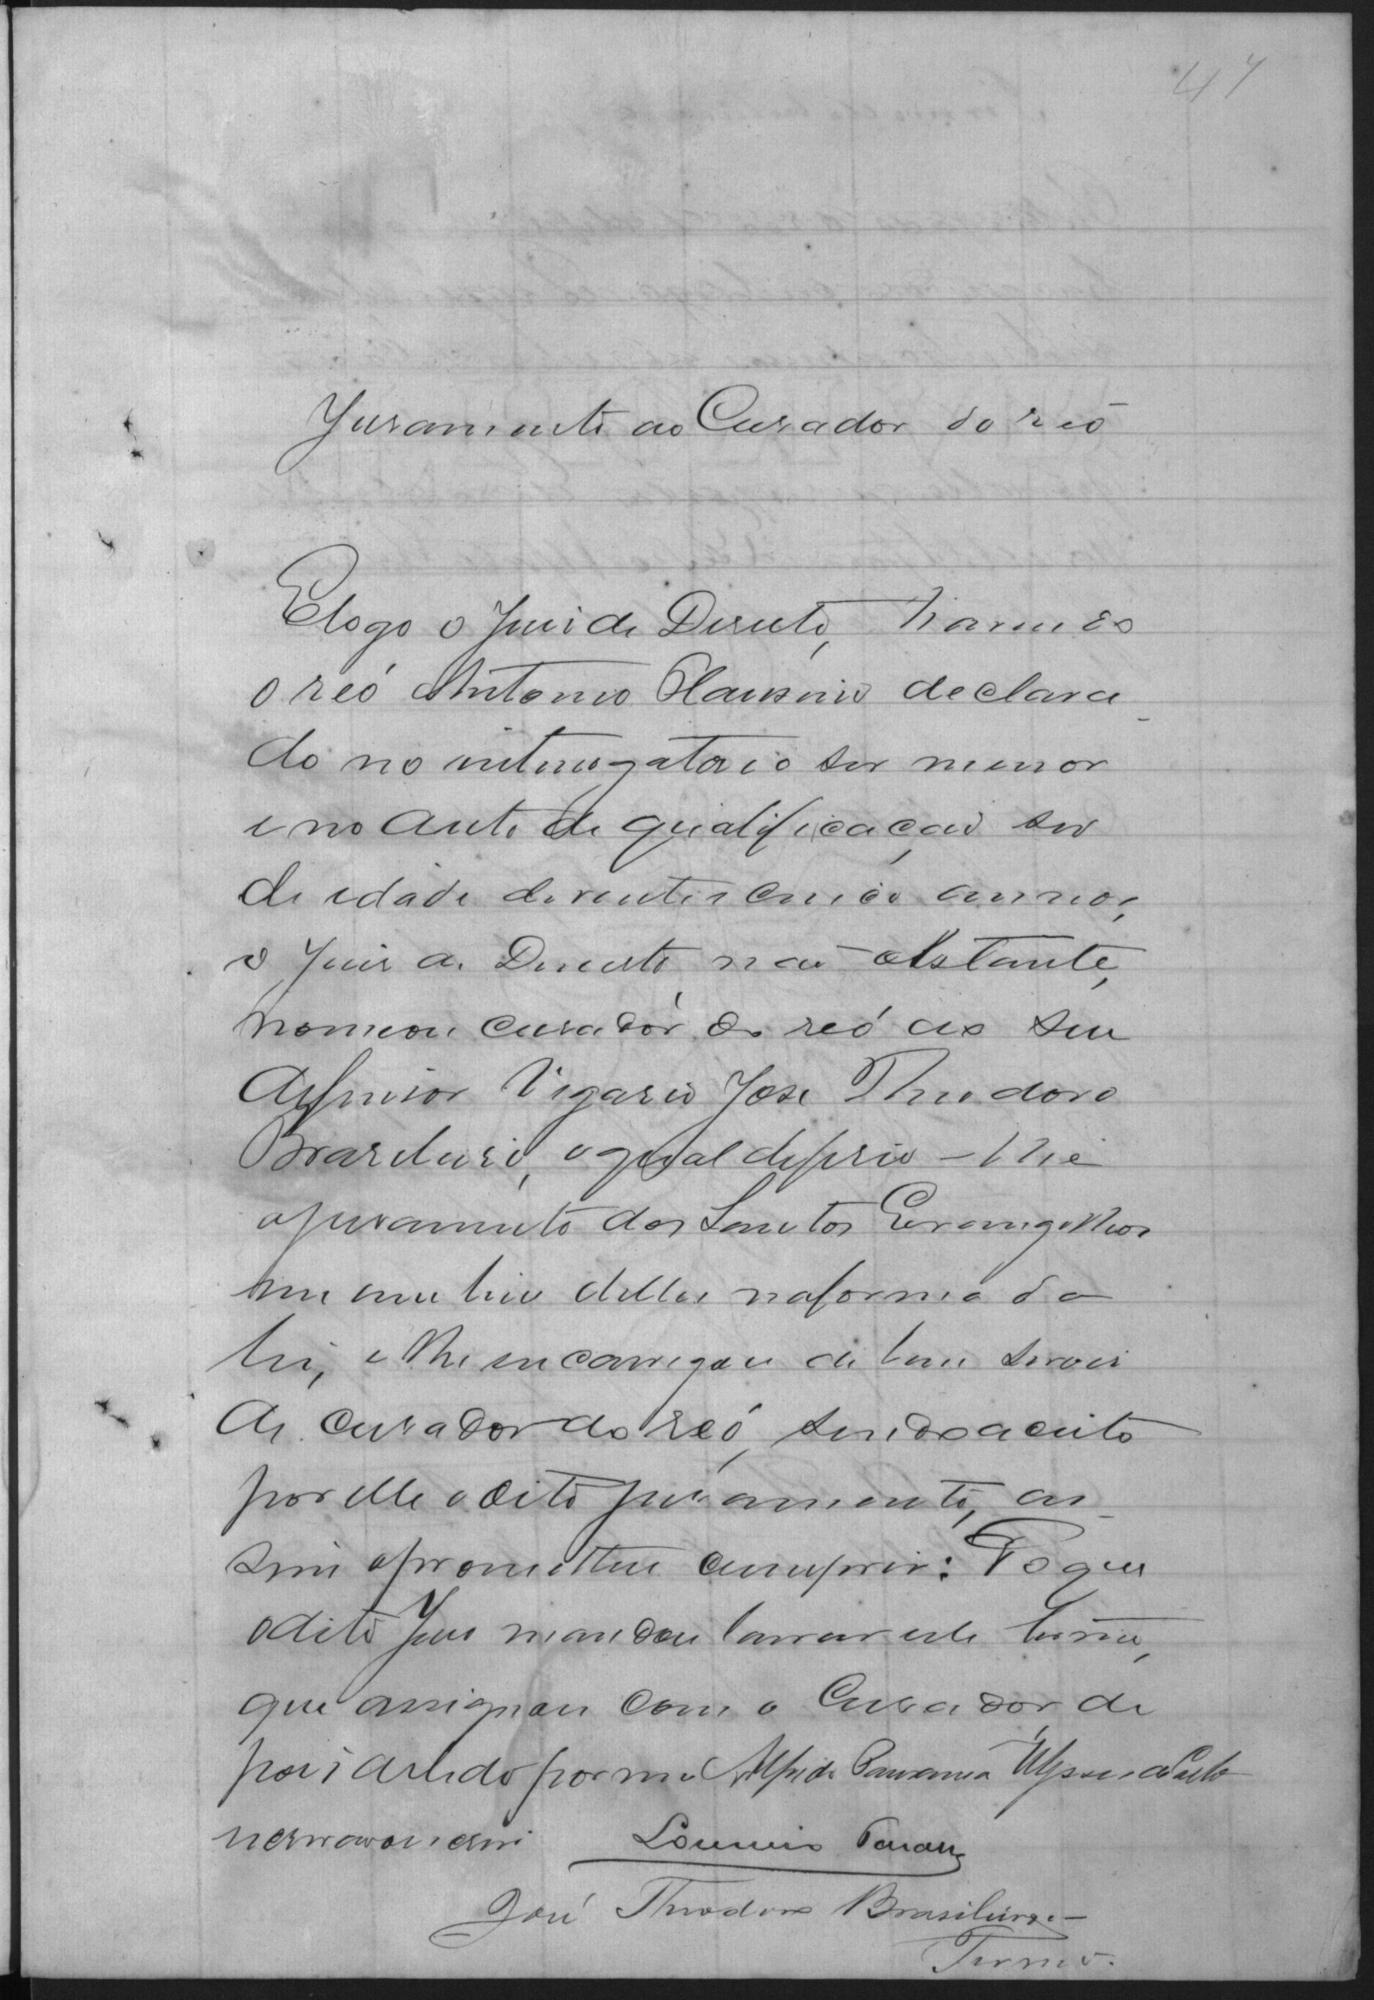 47
Juramento ao Curador do reó
E logo o Juis de Direito, havendo
o reó Antonio declara
do no interrogatorio ser menor
e no auto de qualificação ser
de idade de vinte e cinco annos,
o Juis de Direito não obstante,
nomeou curador do reó ao seu
defensor Vigario José Theodoro
Brasileiro, o qual deferio-lhe
o juramento dos Santos Evangelhos
em um livro delles na forma da
lei, e lhe encarregou de bem servir
de curador do reó, sendo aceito
por elle o dito juramento, as
sim o prometteu cumprir: Do que
o dito Juis mandou lavrar este termo,
que assignou com o Curador de
pois de lido por mim Alfredo
José Theodoro Brasileiro
Termo.